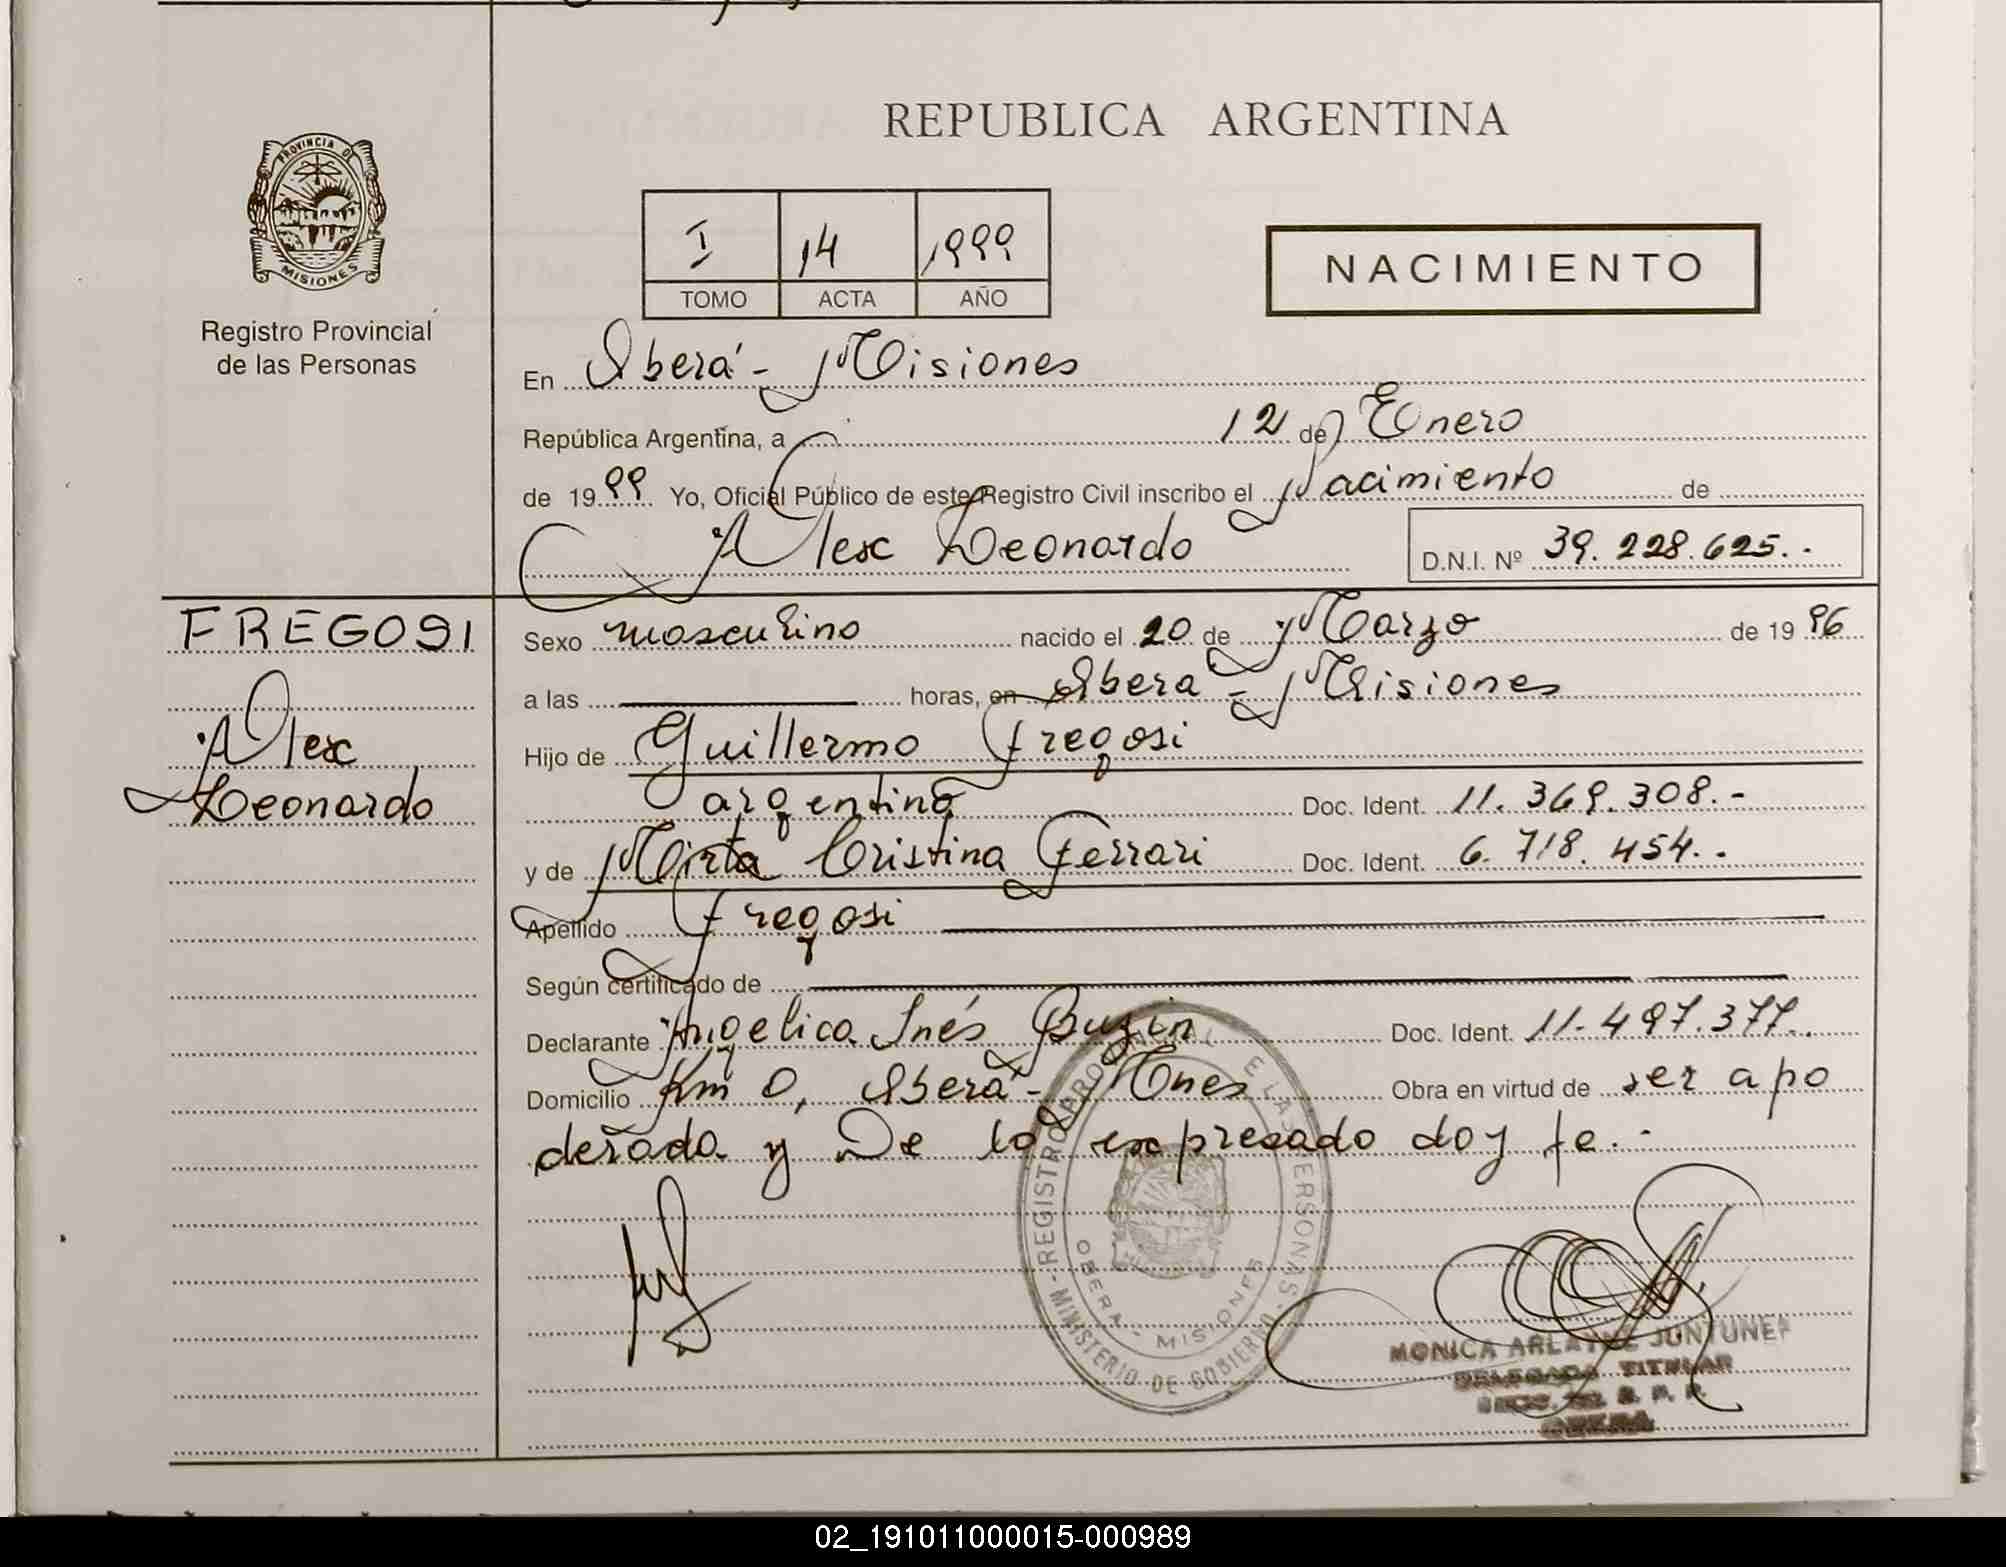 REPUBLICA ARGENTINA
PROVINCIA DE
MISIONES
Registro Provincial
de las Personas
I 14 1999
TOMO ACTA AÑO
NACIMIENTO
En Oberá - Misiones
República Argentina, a 12 de Enero
de 1999 Yo, Oficial Público de este Registro Civil inscribo el Nacimiento de
Alex Leonardo
D.N.I. Nº 39.228.625.-
FREGOSI
Alex
Leonardo
Sexo masculino nacido el 20 de Marzo de 1996
a las horas, en Oberá - Misiones
Hijo de Guillermo Fregosi
argentino Doc. Ident. 11.369.308.-
y de Mirta Cristina Ferrari Doc. Ident. 6.718.454.-
Apellido Fregosi
Según certificado de
Declarante Angelica Inés Buzin Doc. Ident. 11.497.377.
Domicilio Km 0, Oberá - Mnes Obra en virtud de ser apo
derada y De lo expresado doy fe.-
REGISTRO PROVINCIAL DE LAS PERSONAS
MINISTERIO DE GOBIERNO
OBERA - MISIONES
MONICA JUNTUNEN
DELEGADA TITULAR
R. P. P.
OBERA
02_191011000015-000989